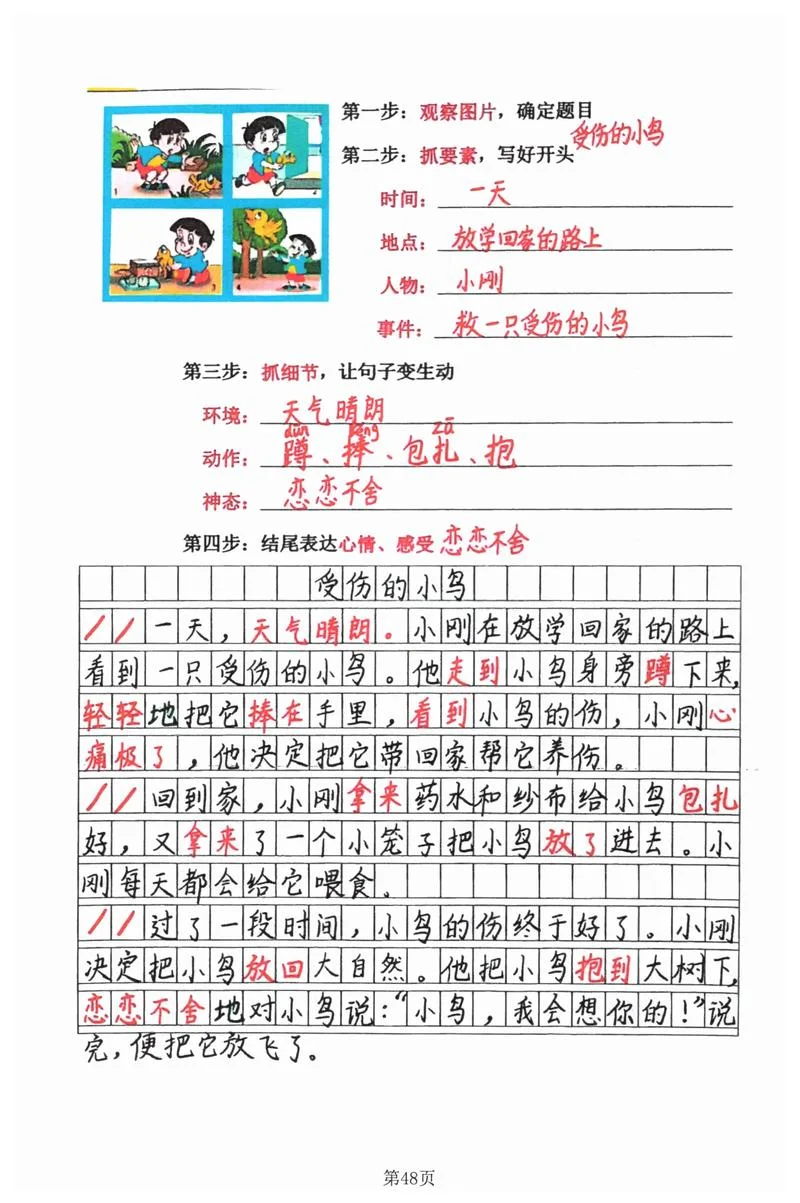 第一步：观察图片，确定题目
受伤的小鸟
第二步：抓要素，写好开头
时间：一天
地点：放学回家的路上
人物：小刚
事件：救一只受伤的小鸟
第三步：抓细节，让句子变生动
环境：天气晴朗
dūn pěng zā
动作：蹲、捧、包扎、抱
神态：恋恋不舍
第四步：结尾表达心情、感受 恋恋不舍
受伤的小鸟
一天，天气晴朗。小刚在放学回家的路上
看到一只受伤的小鸟。他走到小鸟身旁蹲下来，
轻轻地把它捧在手里，看到小鸟的伤，小刚心
痛极了，他决定把它带回家帮它养伤。
回到家，小刚拿来药水和纱布给小鸟包扎
好，又拿来了一个小笼子把小鸟放了进去。小
刚每天都会给它喂食。
过了一段时间，小鸟的伤终于好了。小刚
决定把小鸟放回大自然。他把小鸟抱到大树下，
恋恋不舍地对小鸟说：“小鸟，我会想你的！”说
完，便把它放飞了。
1
2
3
4
第48页